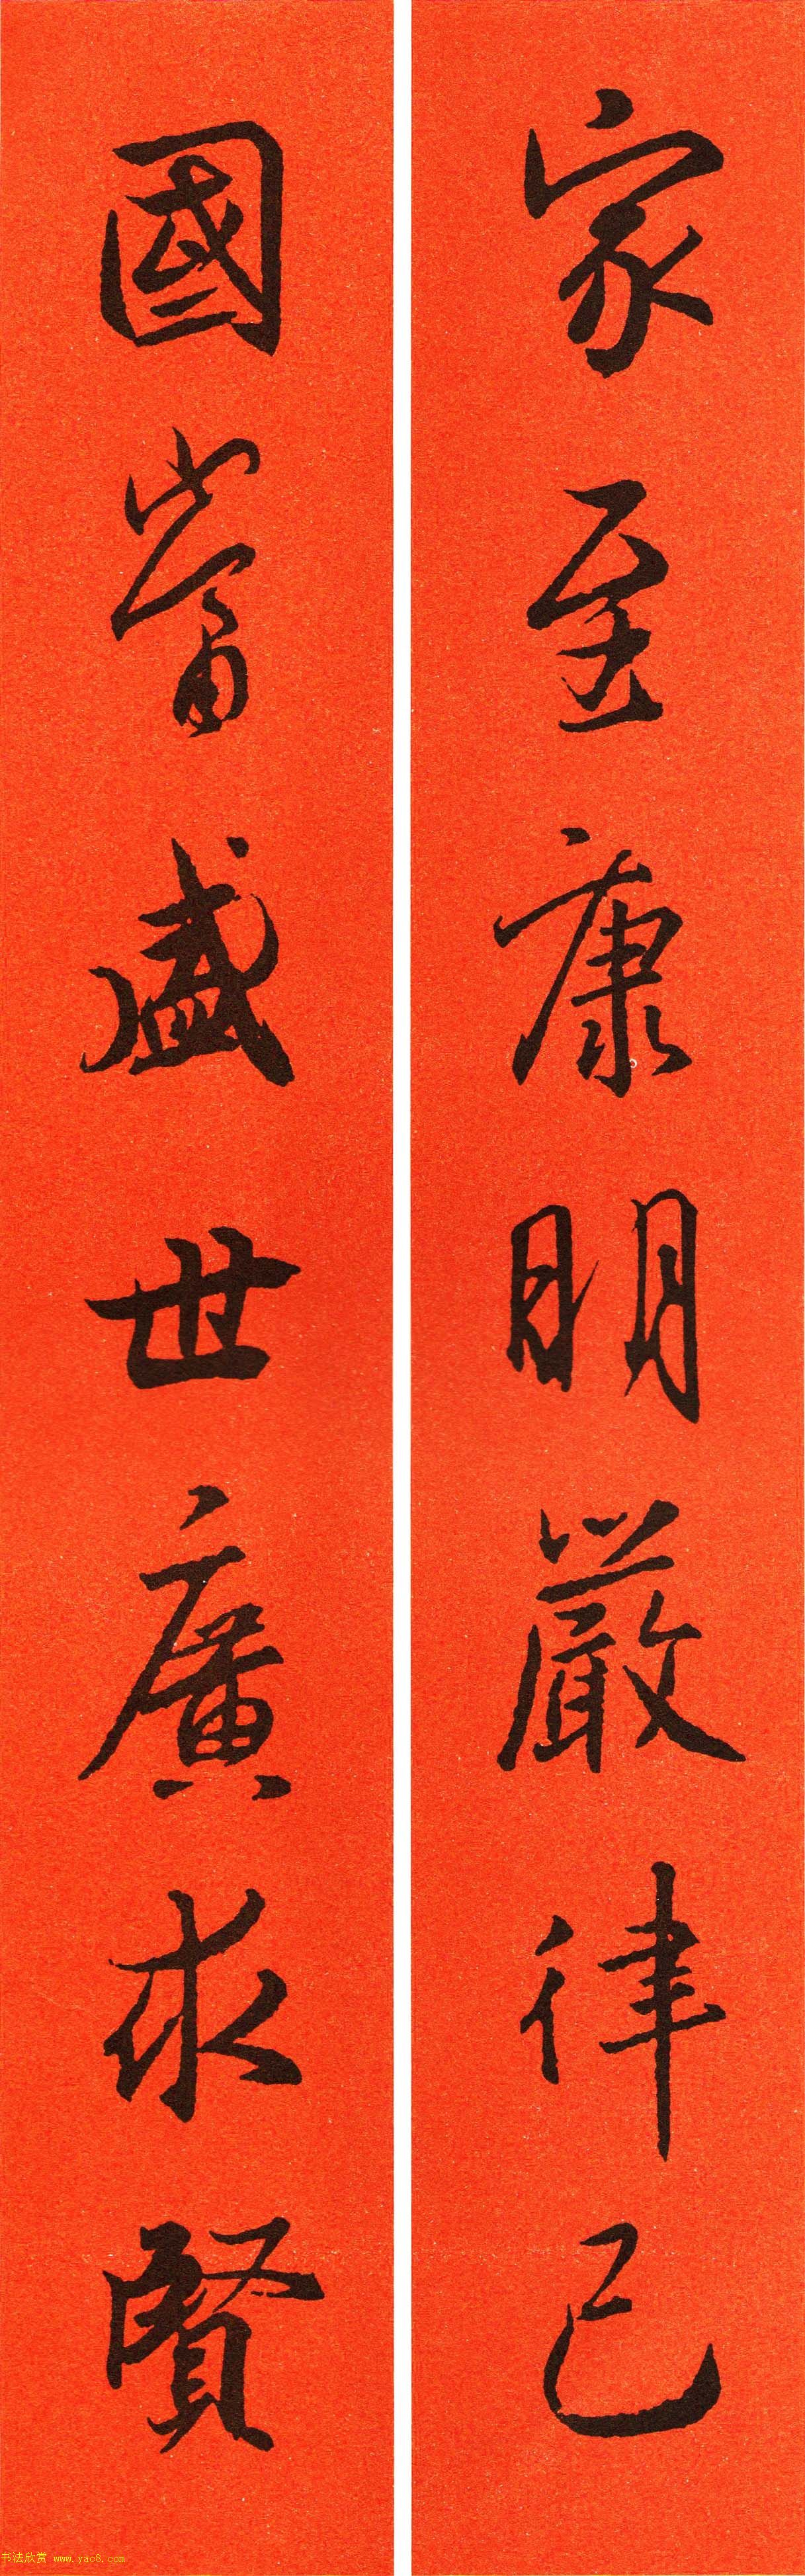 家至康明嚴律己
國當盛世廣求賢
书法欣赏 www.yac8.com